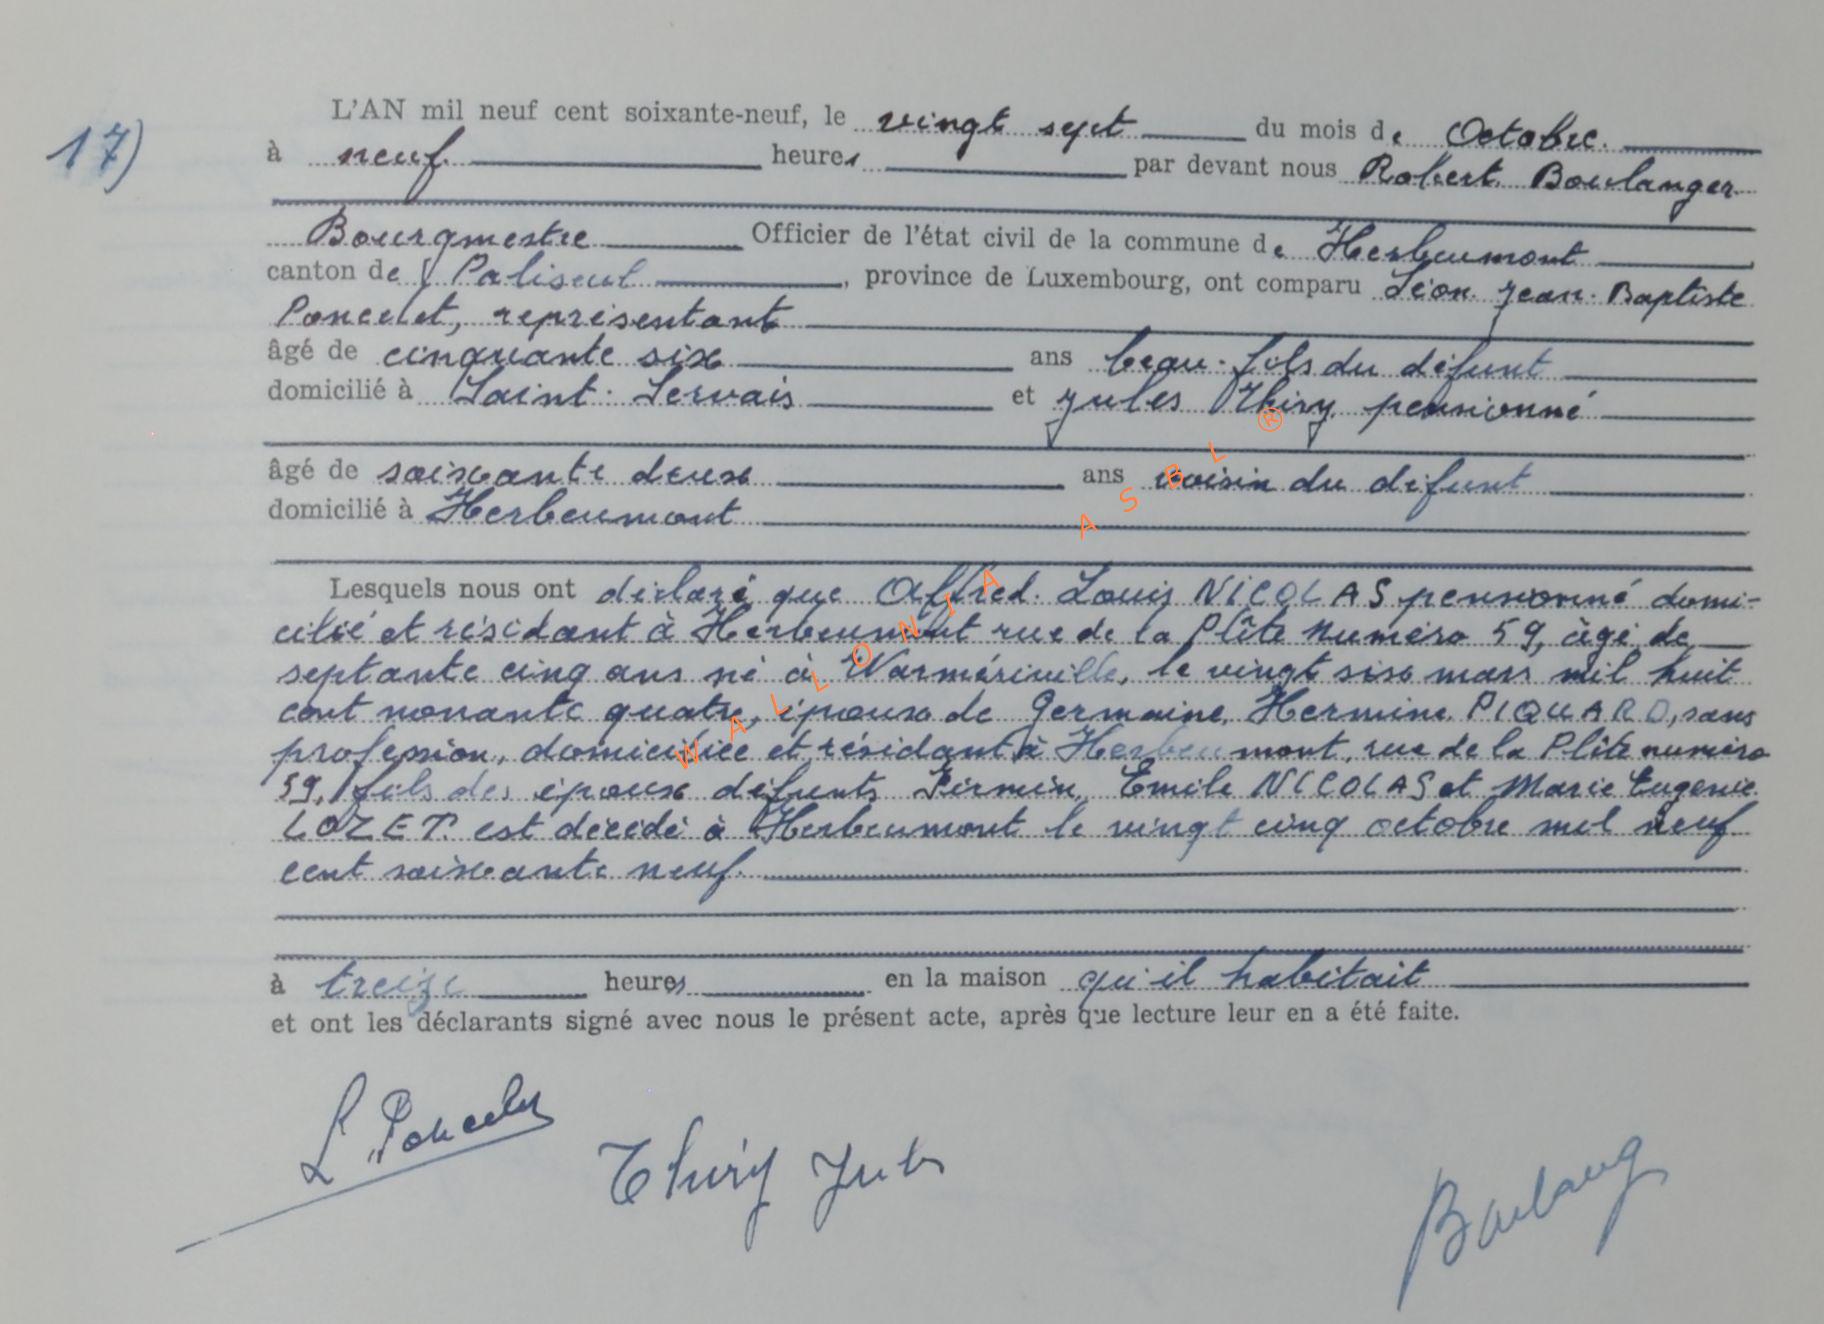 17)
L'AN mil neuf cent soixante-neuf, le vingt sept du mois de Octobre.
à neuf heures par devant nous Robert Boulanger
Bourgmestre Officier de l'état civil de la commune de Herbeumont
canton de Paliseul, province de Luxembourg, ont comparu Léon Jean-Baptiste
Poncelet, représentant
âgé de cinquante six ans beau-fils du défunt
domicilié à Saint-Servais et Jules Thiry pensionné
âgé de soixante deux ans voisin du défunt
domicilié à Herbeumont
Lesquels nous ont déclaré que Alfred Louis NICOLAS pensionné domi-
cilié et résidant à Herbeumont rue de la Plîte numéro 59, âgé de
septante cinq ans né à Warmériville, le vingt six mars mil huit
cent nonante quatre, époux de Germaine Hermine PIQUARD, sans
profession, domiciliée et résidant à Herbeumont, rue de la Plîte numéro
59, fils des époux défunts Firmin Emile NICOLAS et Marie Eugenie
LOZET est décédé à Herbeumont le vingt cinq octobre mil neuf
cent soixante neuf.
à treize heures en la maison qu'il habitait
et ont les déclarants signé avec nous le présent acte, après que lecture leur en a été faite.
L. Poncelet
Thiry Jules
Boulang
WALLONIA ASBL ®